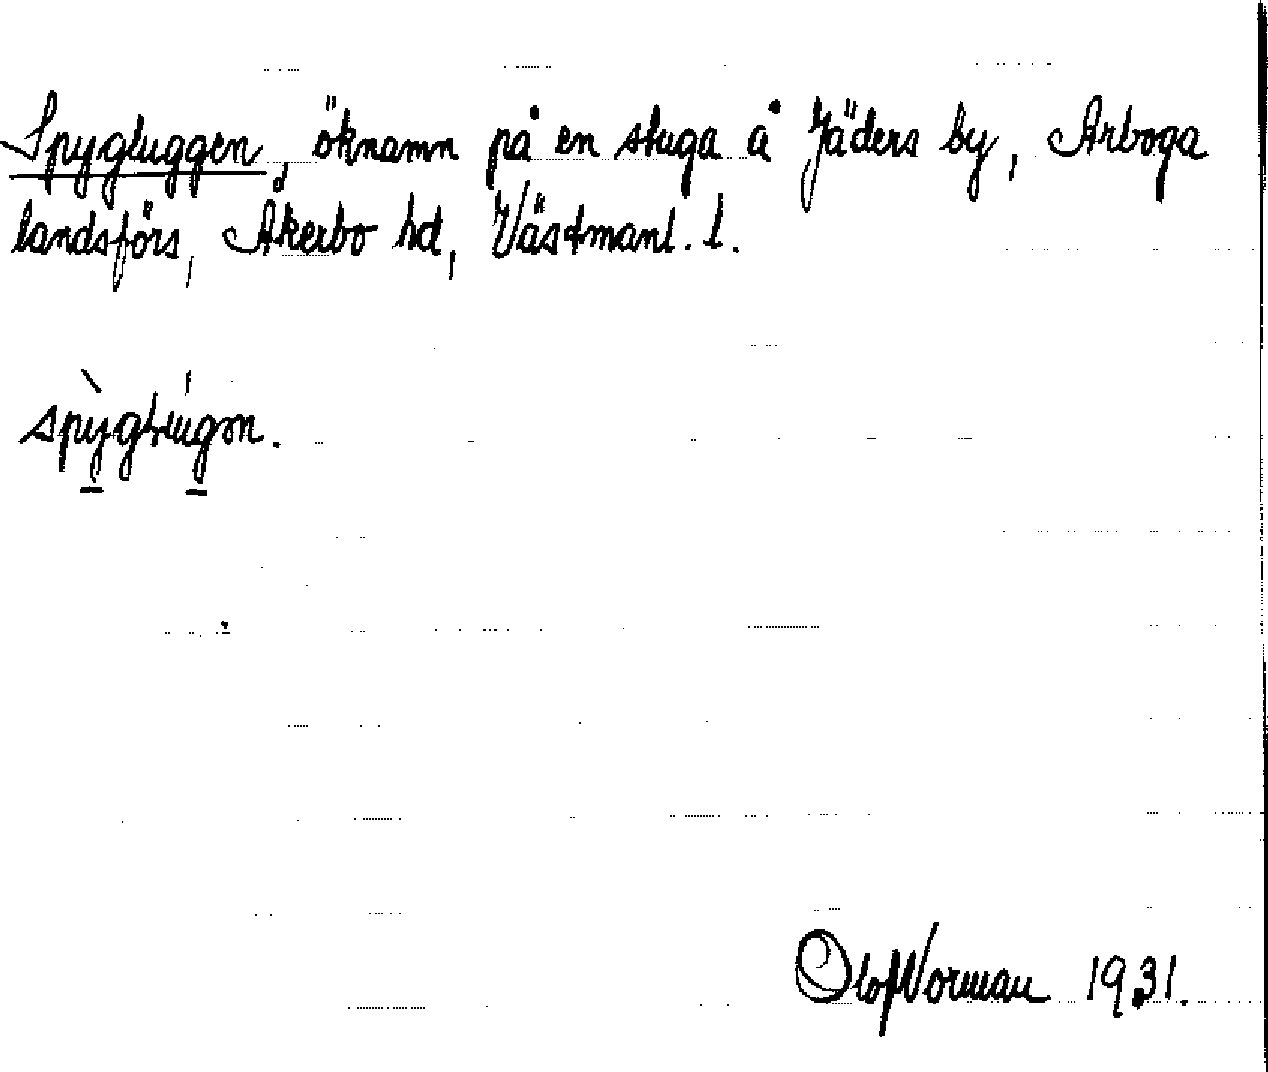 Spygluggen, öknamn på en stuga å Jäders by, Arboga
landsförs, Åkerbo hd, Västmanl. l.
spỳglúgən.
Olof Norman 1931.